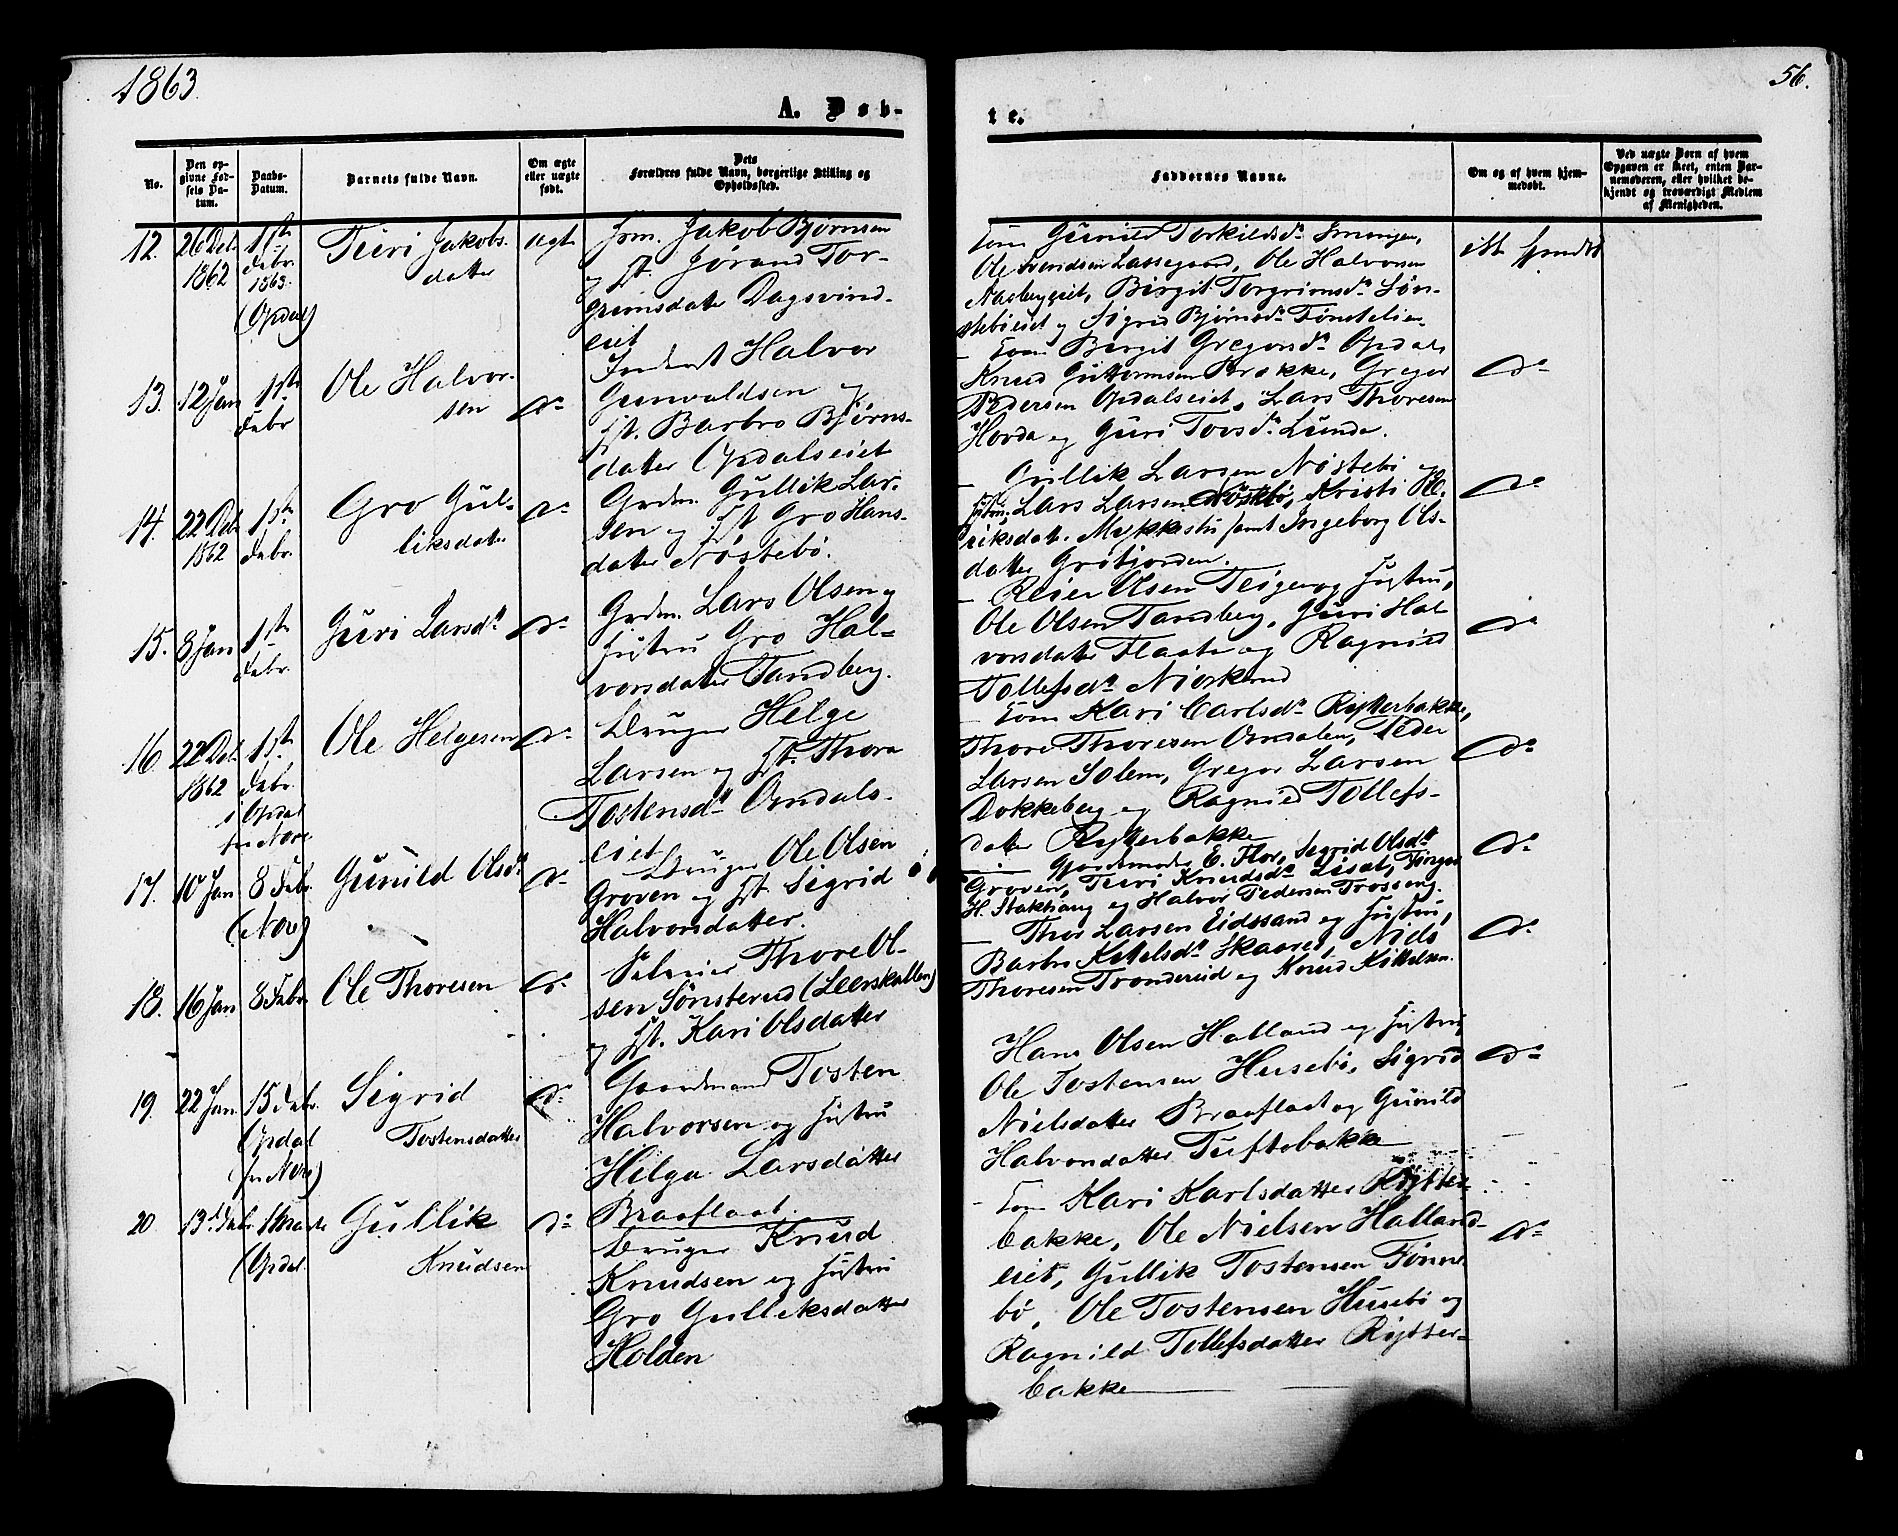 1863.
56.
A. Døb-
te.
No.
Den op-
givne Fød-
sels Da-
tum.
Daabs-
Datum.
Barnets fulde Navn.
Om ægte
eller uægte
født.
Dets
Forældres fulde Navn, borgerlige Stilling og
Opholdssted.
Faddernes Navne.
Om og af hvem hjem-
medøbt.
Ved uægte Børn af hvem
Opgaven er skeet, enten Bar-
nemoderen, eller hvilket be-
kjendt og troværdigt Medlem
af Menigheden.
12.
26 Dec
1862
1ste
Febr.
1863.
(Opdal)
Turi Jakobs-
datter
ægte
Jakob Bjørnsen
og Jørand Tor-
grimsdatter Dagsvind-
eiet
Gunild Torkildsdr
Ole Svendsen Lassegaard, Ole Halvorsen
Birgit Torgrimsdr Søn-
stebøeiet og Sigrid Bjørnsdr
13.
12 Jan
1ste
Febr
Ole Halvor-
sen
do
Halvor
Gunvaldsen og
Barbro Bjørns-
datter Opdalseiet
Birgit Gregorsdr Opdal,
Knud Guttormsen Brække, Gregor
Pedersen Opdalseiet, Lars Thoresen
Hovda og Guri Tovsdr Lunde.
do
14.
22 Dec
1862
1ste
Febr.
Gro Gul-
liksdatter
do
Grdm. Gullik Lar-
sen og Gro Hans-
datter Nøstebø.
Gullik Larsen Nøstebø og
Hustru, Lars Larsen Nøstebø, Kristi
riksdat. Mykkestu samt Ingeborg Ols-
datter Grøtjorden.
do
15.
8 Jan
1ste
Febr.
Guri Larsdr
do
Grdm. Lars Olsen og
Hustru Gro Hal-
vorsdatter Tandberg.
Reier Olsen Teigen og Hustru,
Ole Olsen Tandberg, Guri Hal-
vorsdatter Flaata og Ragnild
Tollefsdr Niøskerud
do
16.
22 Dec
1862
1ste
Febr.
i Opdal
for Nore
Ole Helgesen
do
Bruger Helge
Larsen og Thora
Tostensdr Omdals-
eiet
Kari Carlsdr Rytterbakke,
Thore Thoresen Omdalen, Peder
Larsen Solem, Gregor Larsen
Dokkeberg og Ragnild Tollefs-
datter Rytterbakke
do
17.
10 Jan
8 Febr.
(Nore)
Gunild Olsdr
do
Bruger Ole Olsen
Groven og Sigrid
Halvorsdatter.
Gjordemoder E. Flor, Sigrid Olsdr
Groven, Turi Knudsdr
H. Stakhaug og Halvor Pedersen
do
18.
16 Jan
8 Febr
Ole Thoresen
do
Thore Ol-
sen Sønsterud (Leerskallen)
og Kari Olsdatter
Thor Larsen Eidssand og Hustru,
Barbro Ketelsdr Skaaret, Niels
Thoresen Trondereid og Knud Kittelsen.
do
19.
22 Jan
15 Febr.
(Opdal
for Nore)
Sigrid
Tostensdatter
do
Gaardmand Tosten
Halvorsen og Hustru
Helga Larsdatter
Braaflaat.
Hans Olsen Halland og Hustru,
Ole Tostensen Husebø, Sigrid
Nielsdatter Braaflaat og Gunild
Halvorsdatter Tuftebakke
do
20.
13 Febr
1 Marts
(Opdal
Gullik
Knudsen
do
Bruger Knud
Knudsen og Hustru
Gro Gulliksdatter
Holden
Kari Karlsdatter Rytter-
bakke, Ole Nielsen Halland-
eiet, Gullik Tostensen Fønne-
bø, Ole Tostensen Husebø og
Ragnild Tollefsdatter Rytter-
bakke
do